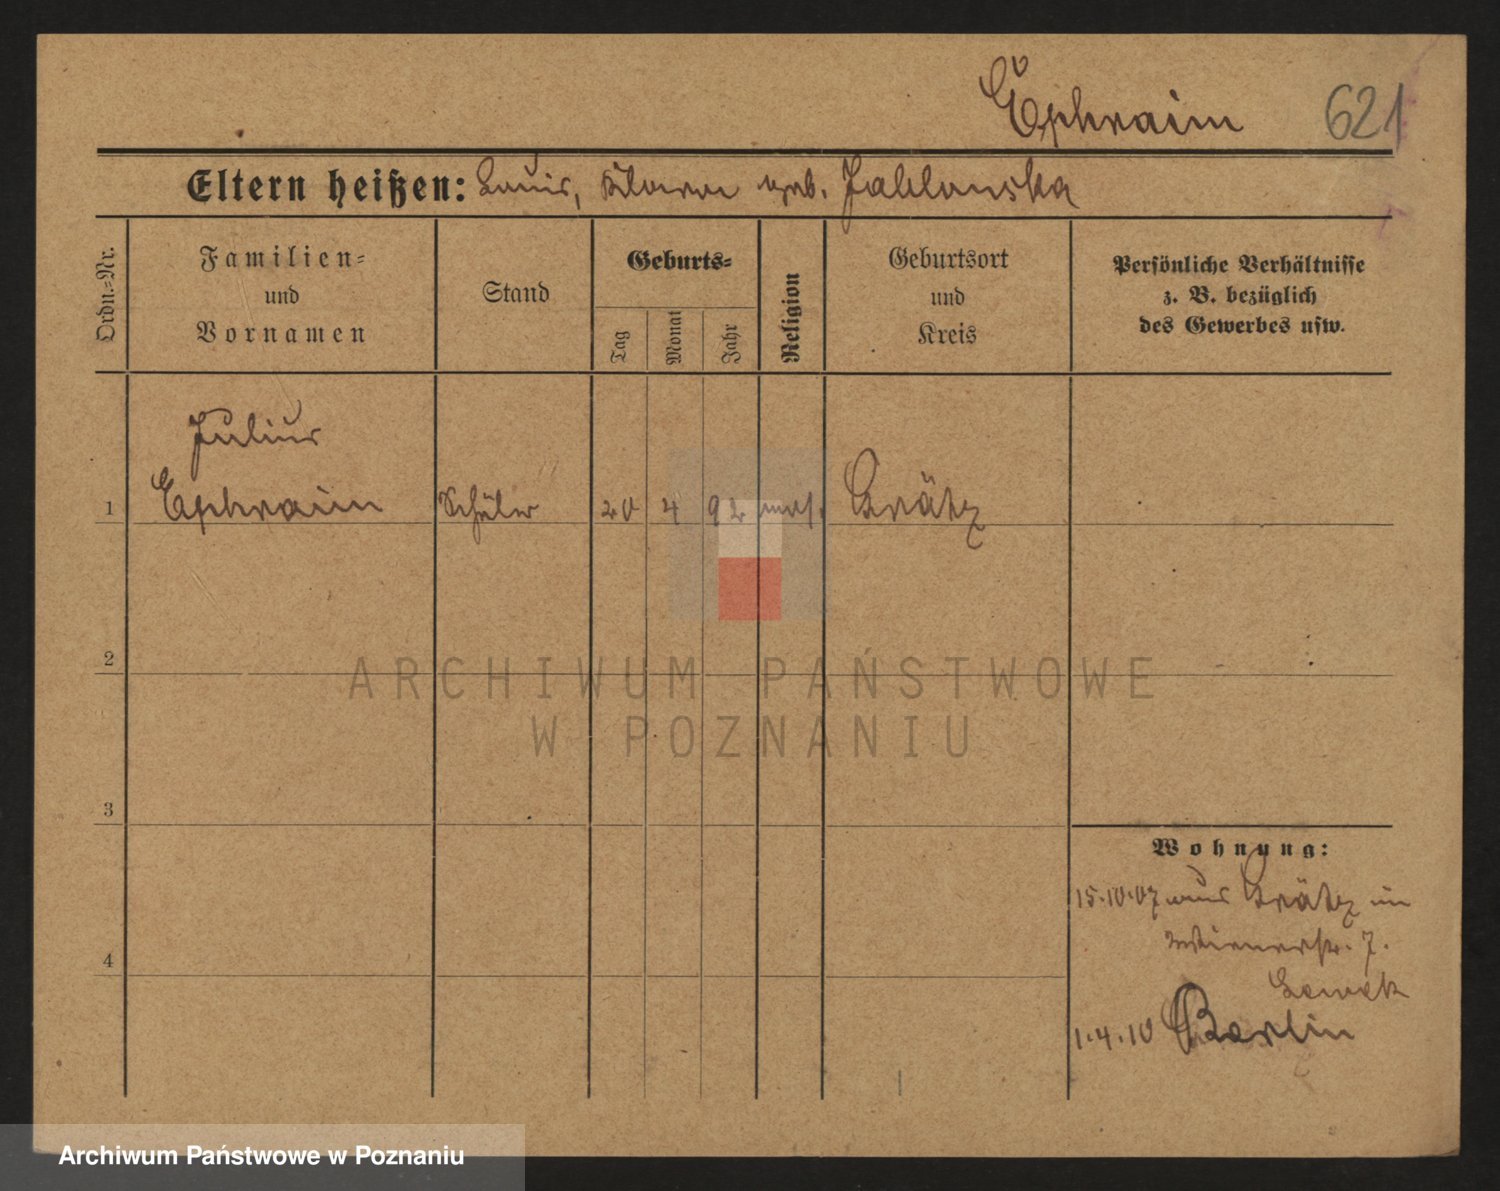 Ephraim 621
Eltern heißen: Louis, Klara geb. Jablonska
Ordn.-Nr.
Familien-
und
Vornamen
Stand
Geburts-
Tag
Monat
Jahr
Religion
Geburtsort
und
Kreis
Persönliche Verhältnisse
z. B. bezüglich
des Gewerbes usw.
Julius
1 Ephraim Schüler 20 4 92 mos. Grätz
2
3
4
Wohnung:
15.10.07 aus Grätz in
Wienerstr. 7.
1.4.10 Berlin
ARCHIWUM PAŃSTWOWE
W POZNANIU
Archiwum Państwowe w Poznaniu